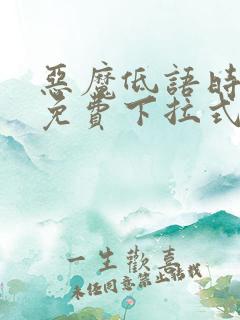 惡魔低語時
免費下拉式
一生歡喜
未经同意禁止搭我